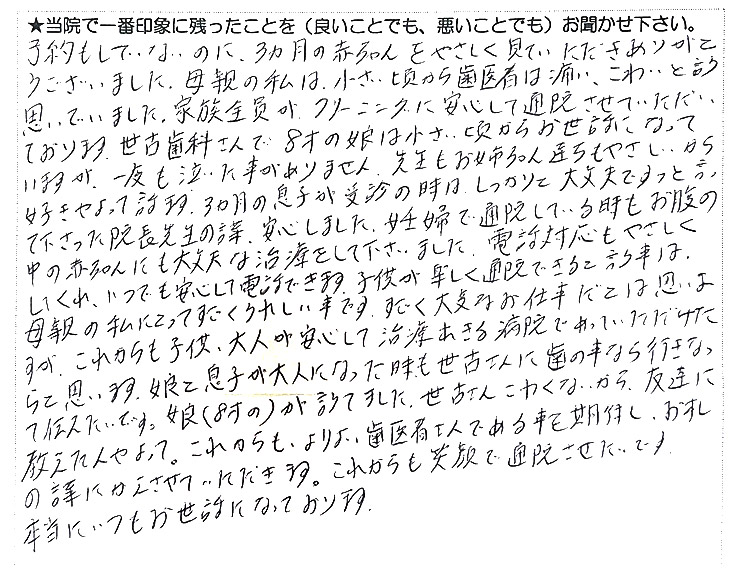 ★当院で一番印象に残ったことを（良いことでも、悪いことでも）お聞かせ下さい。
予約もしていないのに、3カ月の赤ちゃんをやさしく見ていただきありがと
うございました。母親の私は、小さい頃から歯医者は痛い、こわいと
思っていました。家族全員が、クリーニングに安心して通院させていただい
ております。世古歯科さんで8才の娘は小さい頃からお世話になって
いますが、一度も泣いた事がありません。先生もお姉さん達もやさしいから
好きやよって言います。3カ月の息子が受診の時は、しっかりと大丈夫ですっと言っ
て下さった院長先生の言葉、安心しました。妊婦で通院している時もお腹の
中の赤ちゃんにも大丈夫な治療をして下さいました。電話対応もやさしく
してくれ、いつでも安心して電話できます。子供が楽しく通院できると言う事は、
母親の私にとってすごくうれしい事です。すごく大変なお仕事だとは思いま
すが、これからも子供、大人が安心して治療できる病院であっていただけた
らと思います。娘と息子が大人になった時も世古さんに歯の事なら行きなっ
て伝えたいです。娘（8才の）が言ってました。世古さんこわくないから、友達に
教えたんやよって。これからも、よりよい歯医者さんである事を期待し、お礼
の言葉にかえさせていただきます。これからも笑顔で通院させたいです。
本当にいつもお世話になっております。